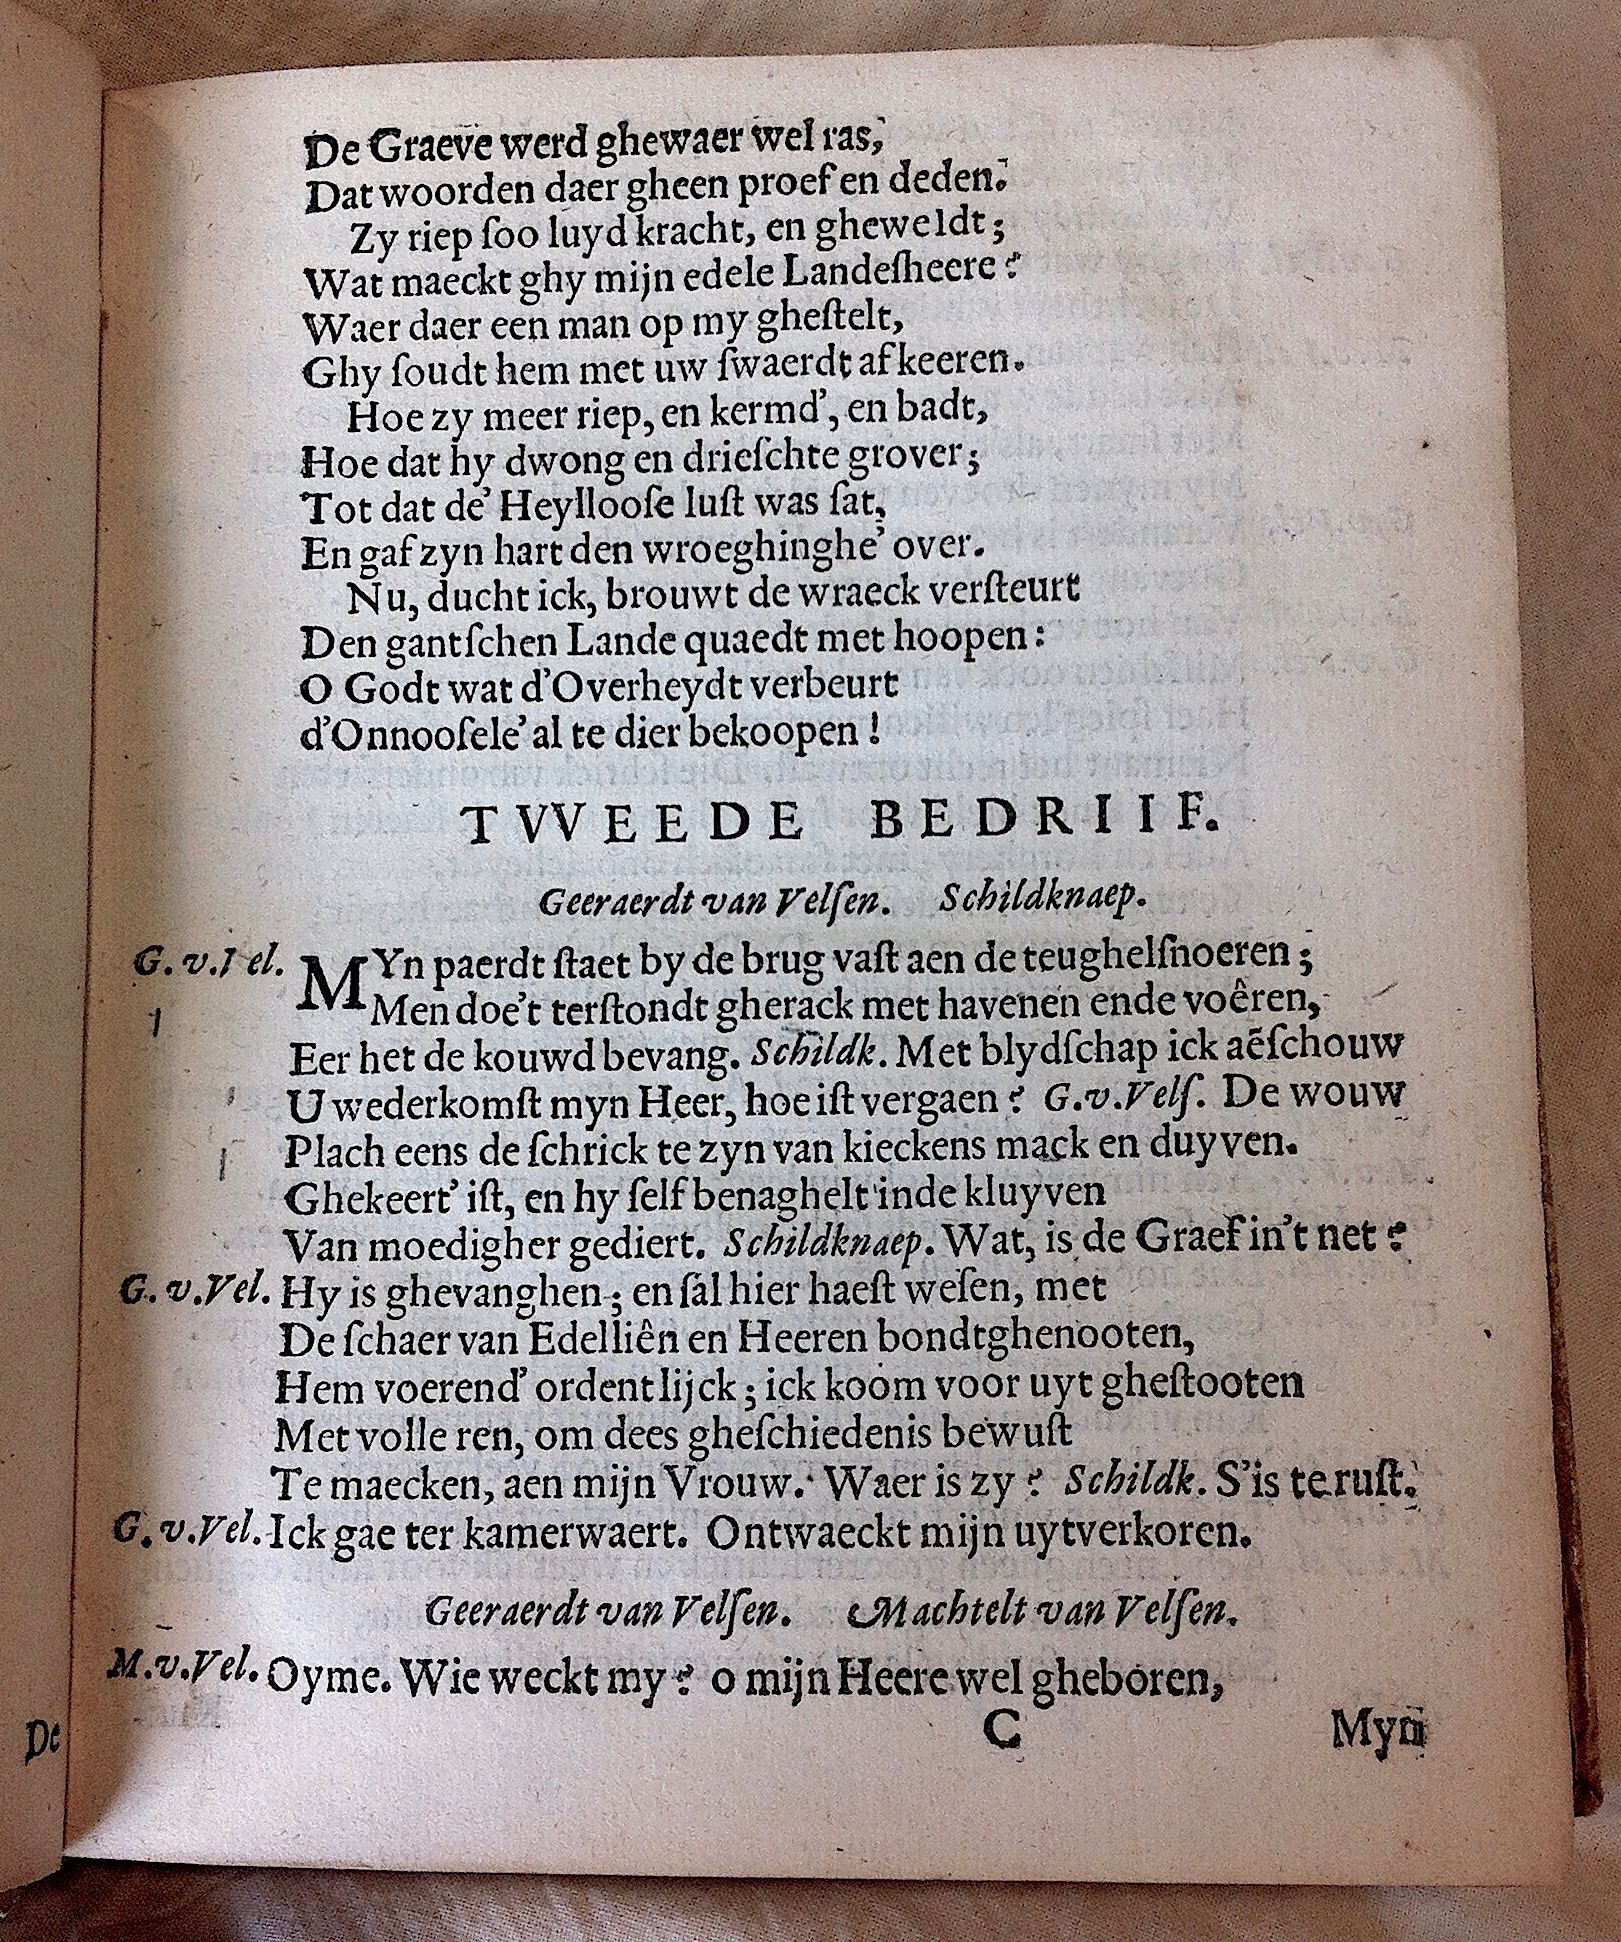 De Graeve werd ghewaer wel ras,
Dat woorden daer gheen proef en deden.
Zy riep ſoo luyd kracht, en gheweldt;
Wat maeckt ghy mijn edele Landeſheere?
Waer daer een man op my gheſtelt,
Ghy ſoudt hem met uw ſwaerdt af keeren.
Hoe zy meer riep, en kermd', en badt,
Hoe dat hy dwong en drieſchte grover;
Tot dat de' Heyllooſe luſt was ſat,
En gaf zyn hart den wroeghinghe' over.
Nu, ducht ick, brouwt de wraeck verſteurt
Den gantſchen Lande quaedt met hoopen:
O Godt wat d'Overheydt verbeurt
d'Onnooſele' al te dier bekoopen!
TVVEEDE BEDRIIF.
Geeraerdt van Velſen. Schildknaep.
G. v. Vel. MYn paerdt ſtaet by de brug vaſt aen de teughelſnoeren;
Men doe't terſtondt gherack met havenen ende voêren,
Eer het de kouwd bevang. Schildk. Met blydſchap ick aẽſchouw
U wederkomſt myn Heer, hoe iſt vergaen? G.v.Velſ. De wouw
Plach eens de ſchrick te zyn van kieckens mack en duyven.
Ghekeert' iſt, en hy ſelf benaghelt inde kluyven
Van moedigher gediert. Schildknaep. Wat, is de Graef in't net?
G. v. Vel. Hy is ghevanghen; en ſal hier haeſt weſen, met
De ſchaer van Edelliên en Heeren bondtghenooten,
Hem voerend' ordentlijck; ick koom voor uyt gheſtooten
Met volle ren, om dees gheſchiedenis bewuſt
Te maecken, aen mijn Vrouw. Waer is zy? Schildk. S'is te ruſt.
G. v. Vel. Ick gae ter kamerwaert. Ontwaeckt mijn uytverkoren.
Geeraerdt van Velſen. Machtelt van Velſen.
M.v.Vel. Oyme. Wie weckt my? o mijn Heere wel gheboren,
C Myn
De